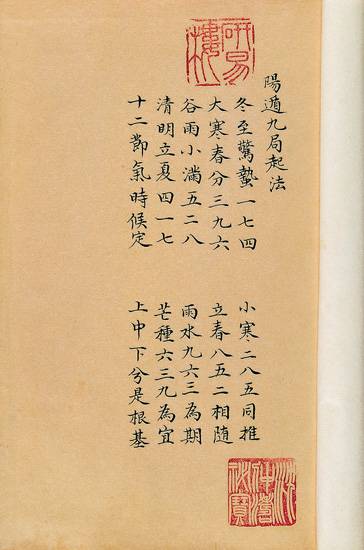 陽遁九局起法
冬至驚蟄一七四
小寒二八五同推
大寒春分三九六
立春八五二相隨
谷雨小滿五二八
雨水九六三為期
清明立夏四一七
芒種六三九為宜
十二節氣時候定
上中下兮是根基
研易樓